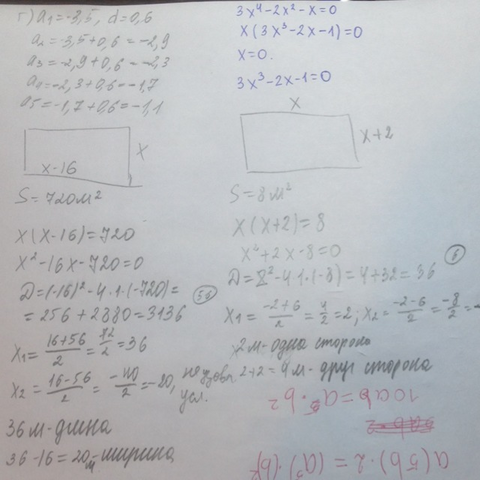 г) a₁=-3,5, d=0,6
a₂=-3,5+0,6=-2,9
a₃=-2,9+0,6=-2,3
a₄=-2,3+0,6=-1,7
a₅=-1,7+0,6=-1,1
x
x-16
S=720м²
x(x-16)=720
x²-16x-720=0
D=(-16)²-4·1·(-720)=
=256+2880=3136
x₁=(16+56)/2=72/2=36
x₂=(16-56)/2=-40/2=-20, не удовл
усл.
36м-длина
36-16=20м-ширина
3x⁴-2x²-x=0
x(3x³-2x-1)=0
x=0.
3x³-2x-1=0
x
x+2
S=8м²
x(x+2)=8
x²+2x-8=0
D=2²-4·1·(-8)=4+32=36
6
x₁=(-2+6)/2=4/2=2; x₂=(-2-6)/2=-8/2=-
2м-одна сторона
2+2=4м-друг сторона
a(5b)·2=(a⁵)·(b²)
10ab=a⁵·b²